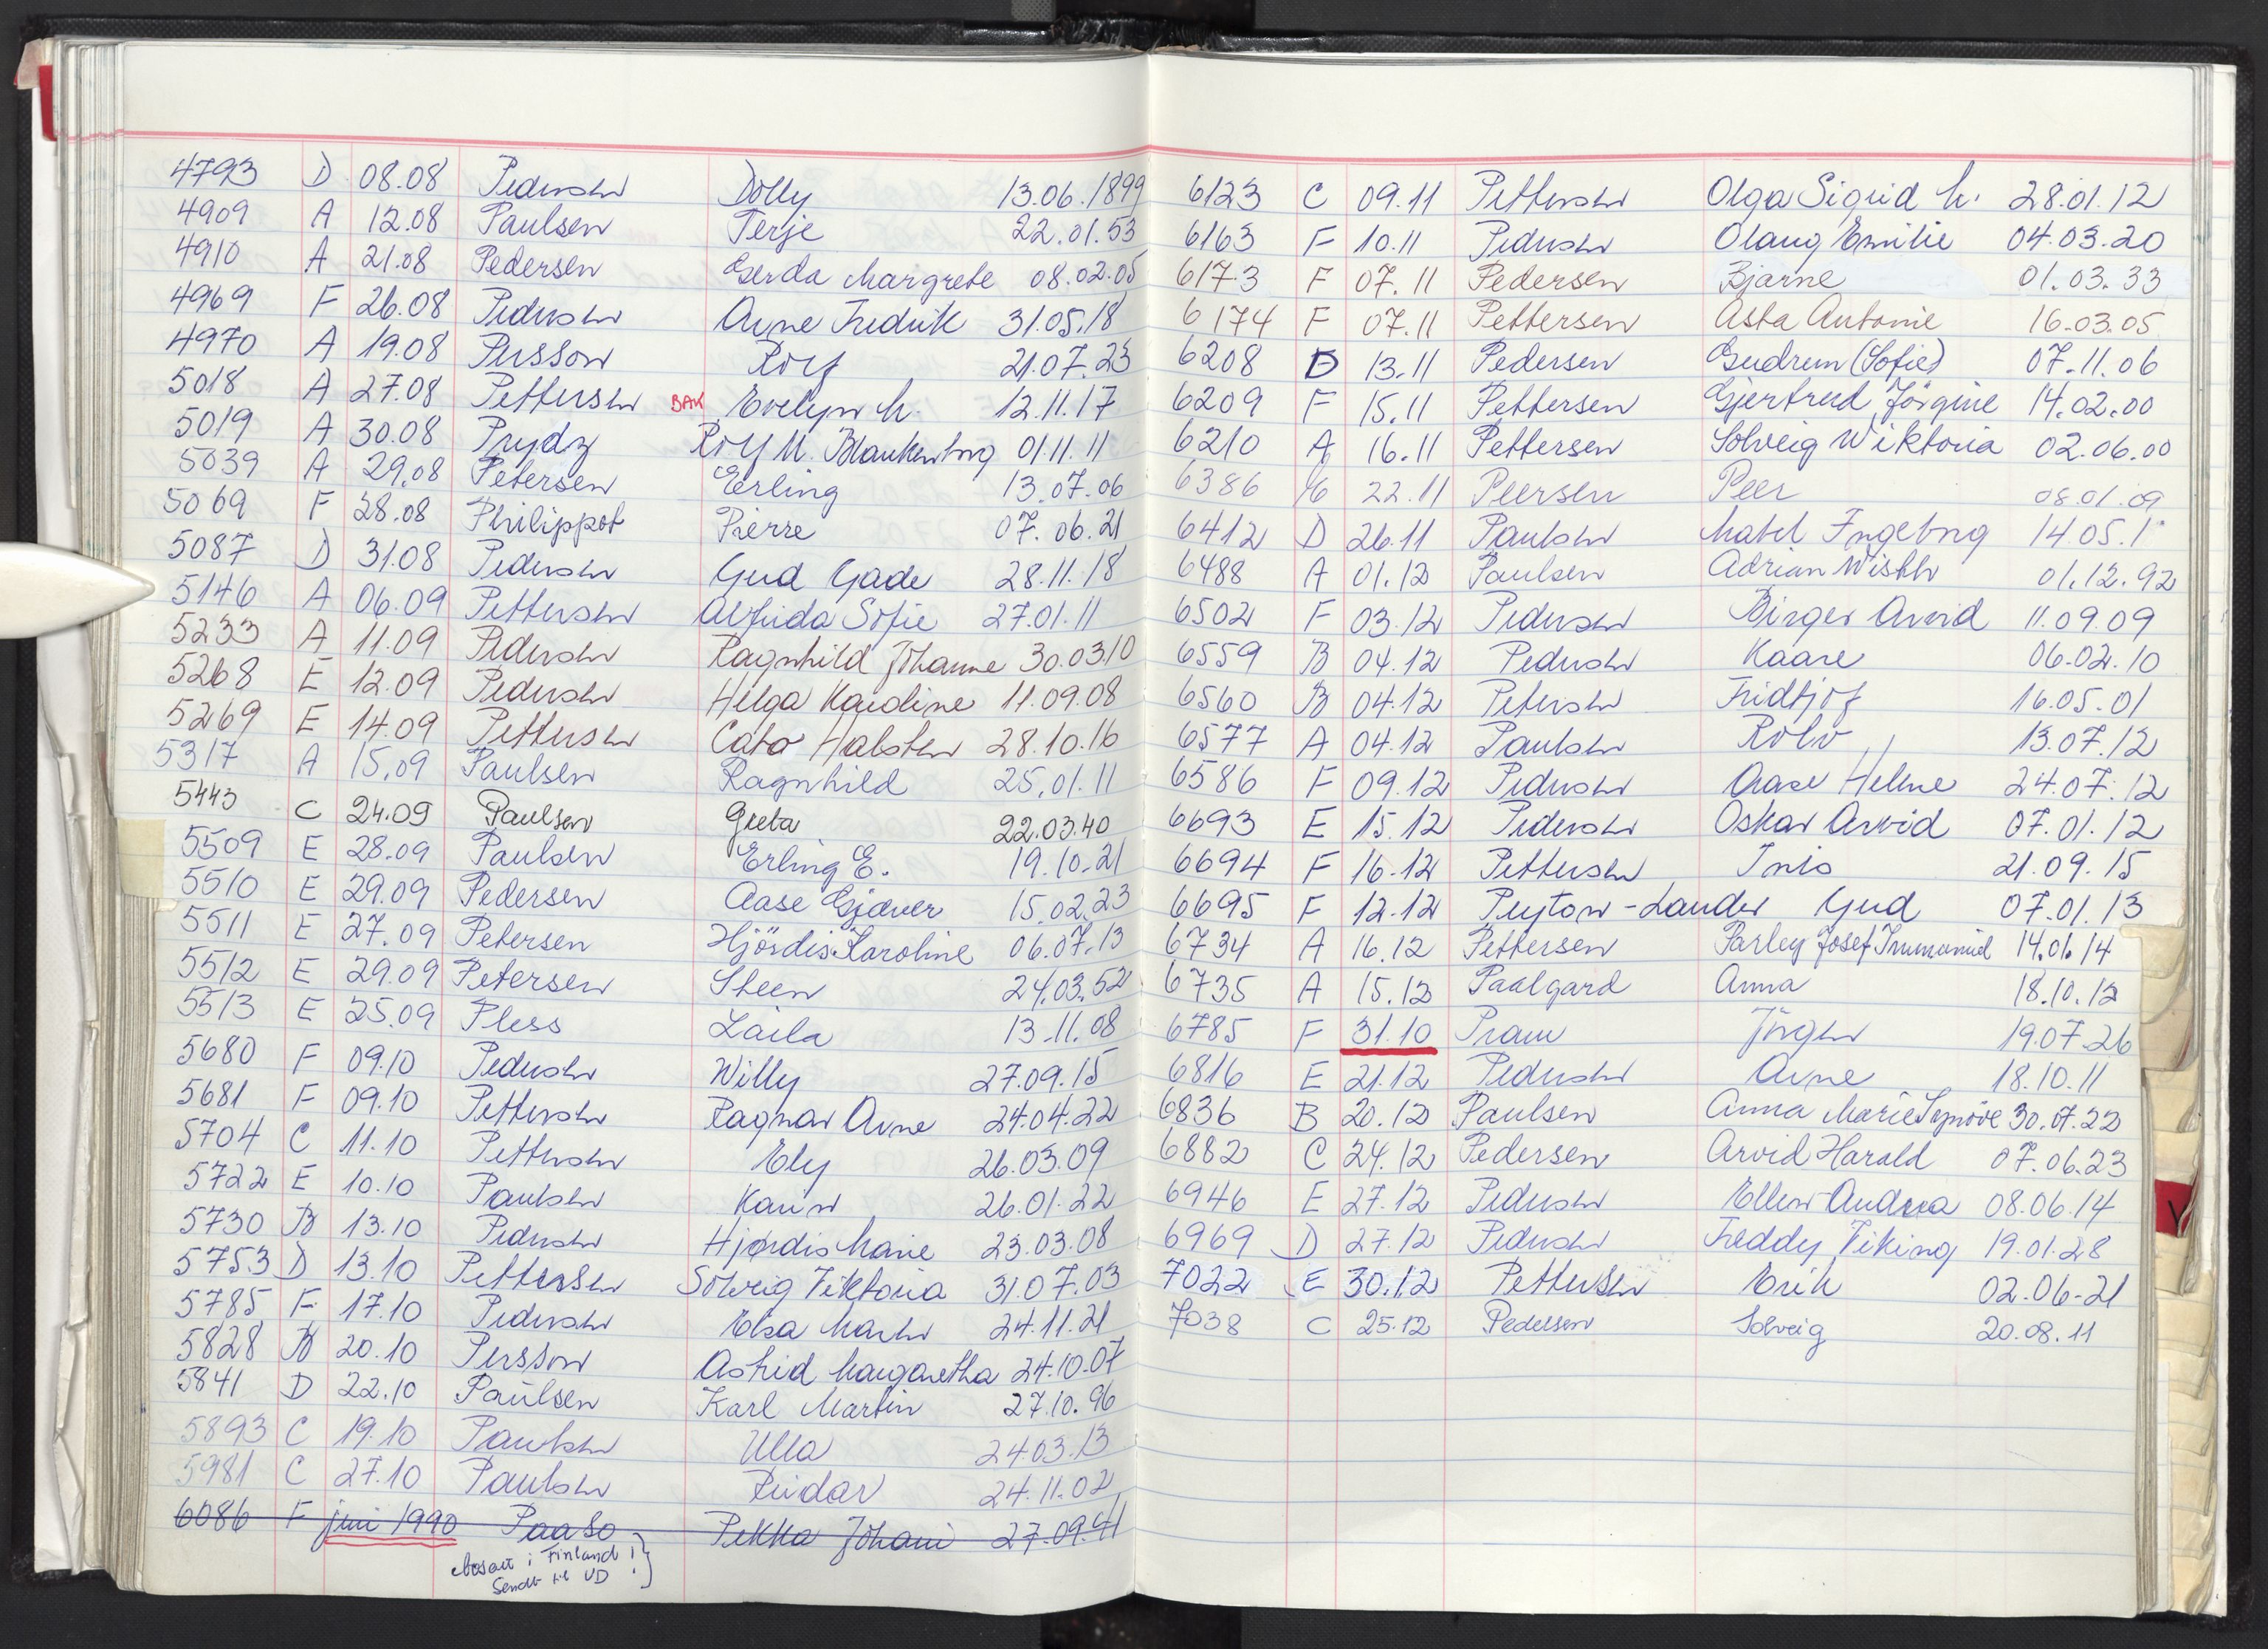 4793 D 08.08 Pedersen Dolly 13.06.1899
4909 A 12.08 Paulsen Terje 22.01.53
4910 A 21.08 Pedersen Gerda Margrete 08.02.05
4969 F 26.08 Pedersen Arne Fredrik 31.05.18
4970 A 19.08 Persson Rolf 21.07.23
5018 A 27.08 Pettersen BAK Evelyn M. 12.11.17
5019 A 30.08 Prydz Rolf M. Blankenborg 01.11.11
5039 A 29.08 Petersen Erling 13.07.06
5069 F 28.08 Philippot Pierre 07.06.21
5087 D 31.08 Pedersen Gerd Gade 28.11.18
5146 A 06.09 Pettersen Alfrida Sofie 27.01.11
5233 A 11.09 Pedersen Ragnhild Johanne 30.03.10
5268 E 12.09 Pedersen Helga Karoline 11.09.08
5269 E 14.09 Pettersen Cato Halsten 28.10.16
5317 A 15.09 Paulsen Ragnhild 25.01.11
5443 C 24.09 Paulsen Greta 22.03.40
5509 E 28.09 Paulsen Erling E. 19.10.21
5510 E 29.09 Pedersen Aase Gjæver 15.02.23
5511 E 27.09 Petersen Hjördis Karoline 06.07.13
5512 E 29.09 Petersen Steen 24.03.52
5513 E 25.09 Pless Laila 13.11.08
5680 F 09.10 Pedersen Willy 27.09.15
5681 F 09.10 Pettersen Ragnar Arne 24.04.22
5704 C 11.10 Pettersen Ely 26.03.09
5722 E 10.10 Paulsen Karin 26.01.22
5730 B 13.10 Pedersen Hjørdis Marie 23.03.08
5753 D 13.10 Pettersen Solveig Viktoria 31.07.03
5785 F 17.10 Pedersen Elsa Maren 24.11.21
5828 B 20.10 Persson Astrid Margaretha 24.10.07
5841 D 22.10 Paulsen Karl Martin 27.10.96
5893 C 19.10 Paulsen Ulla 24.03.13
5981 C 27.10 Paulsen Reidar 24.11.02
6086 F juni 1990 Paaso Pekka Johani 27.09.41
bosatt i Finland!
Sendt til UD!
6123 C 09.11 Pettersen Olga Sigrid M. 28.01.12
6163 F 10.11 Pedersen Olaug Emilie 04.03.20
6173 F 07.11 Pedersen Bjarne 01.03.33
6174 F 07.11 Pettersen Asta Antonie 16.03.05
6208 D 13.11 Pedersen Gudrun (Sofie) 07.11.06
6209 F 15.11 Pettersen Gjertrud Jörgine 14.02.00
6210 A 16.11 Pettersen Solveig Wiktoria 02.06.00
6386 22.11 Peersen Peer 08.01.09
6412 D 26.11 Paulsen Mabel Ingeborg 14.05.1
6488 A 01.12 Paulsen Adrian Wisth 01.12.92
6502 F 03.12 Pedersen Birger Arvid 11.09.09
6559 B 04.12 Pedersen Kaare 06.02.10
6560 B 04.12 Petersen Fridtjof 16.05.01
6577 A 04.12 Paulsen Rolv 13.07.12
6586 F 09.12 Pedersen Aase Helene 24.07.12
6693 E 15.12 Pedersen Oskar Arvid 07.01.12
6694 F 16.12 Pettersen Inis 21.09.15
6695 F 12.12 Peyton-Lander Gerd 07.01.13
6734 A 16.12 Pettersen Parley Josef Immanuel 14.06.14
6735 A 15.12 Paalgard Anna 18.10.12
6785 F 31.10 Pram Jörgen 19.07.26
6816 E 21.12 Pedersen Arne 18.10.11
6836 B 20.12 Paulsen Anna Marie Synöve 30.07.22
6882 C 24.12 Pedersen Arvid Harald 07.06.23
6946 E 27.12 Pedersen Ellen Andrea 08.06.14
6969 D 27.12 Pedersen Freddy Viking 19.01.28
7022 E 30.12 Pettersen Erik 02.06-21
7038 C 25.12 Pedersen Solveig 20.08.11
V